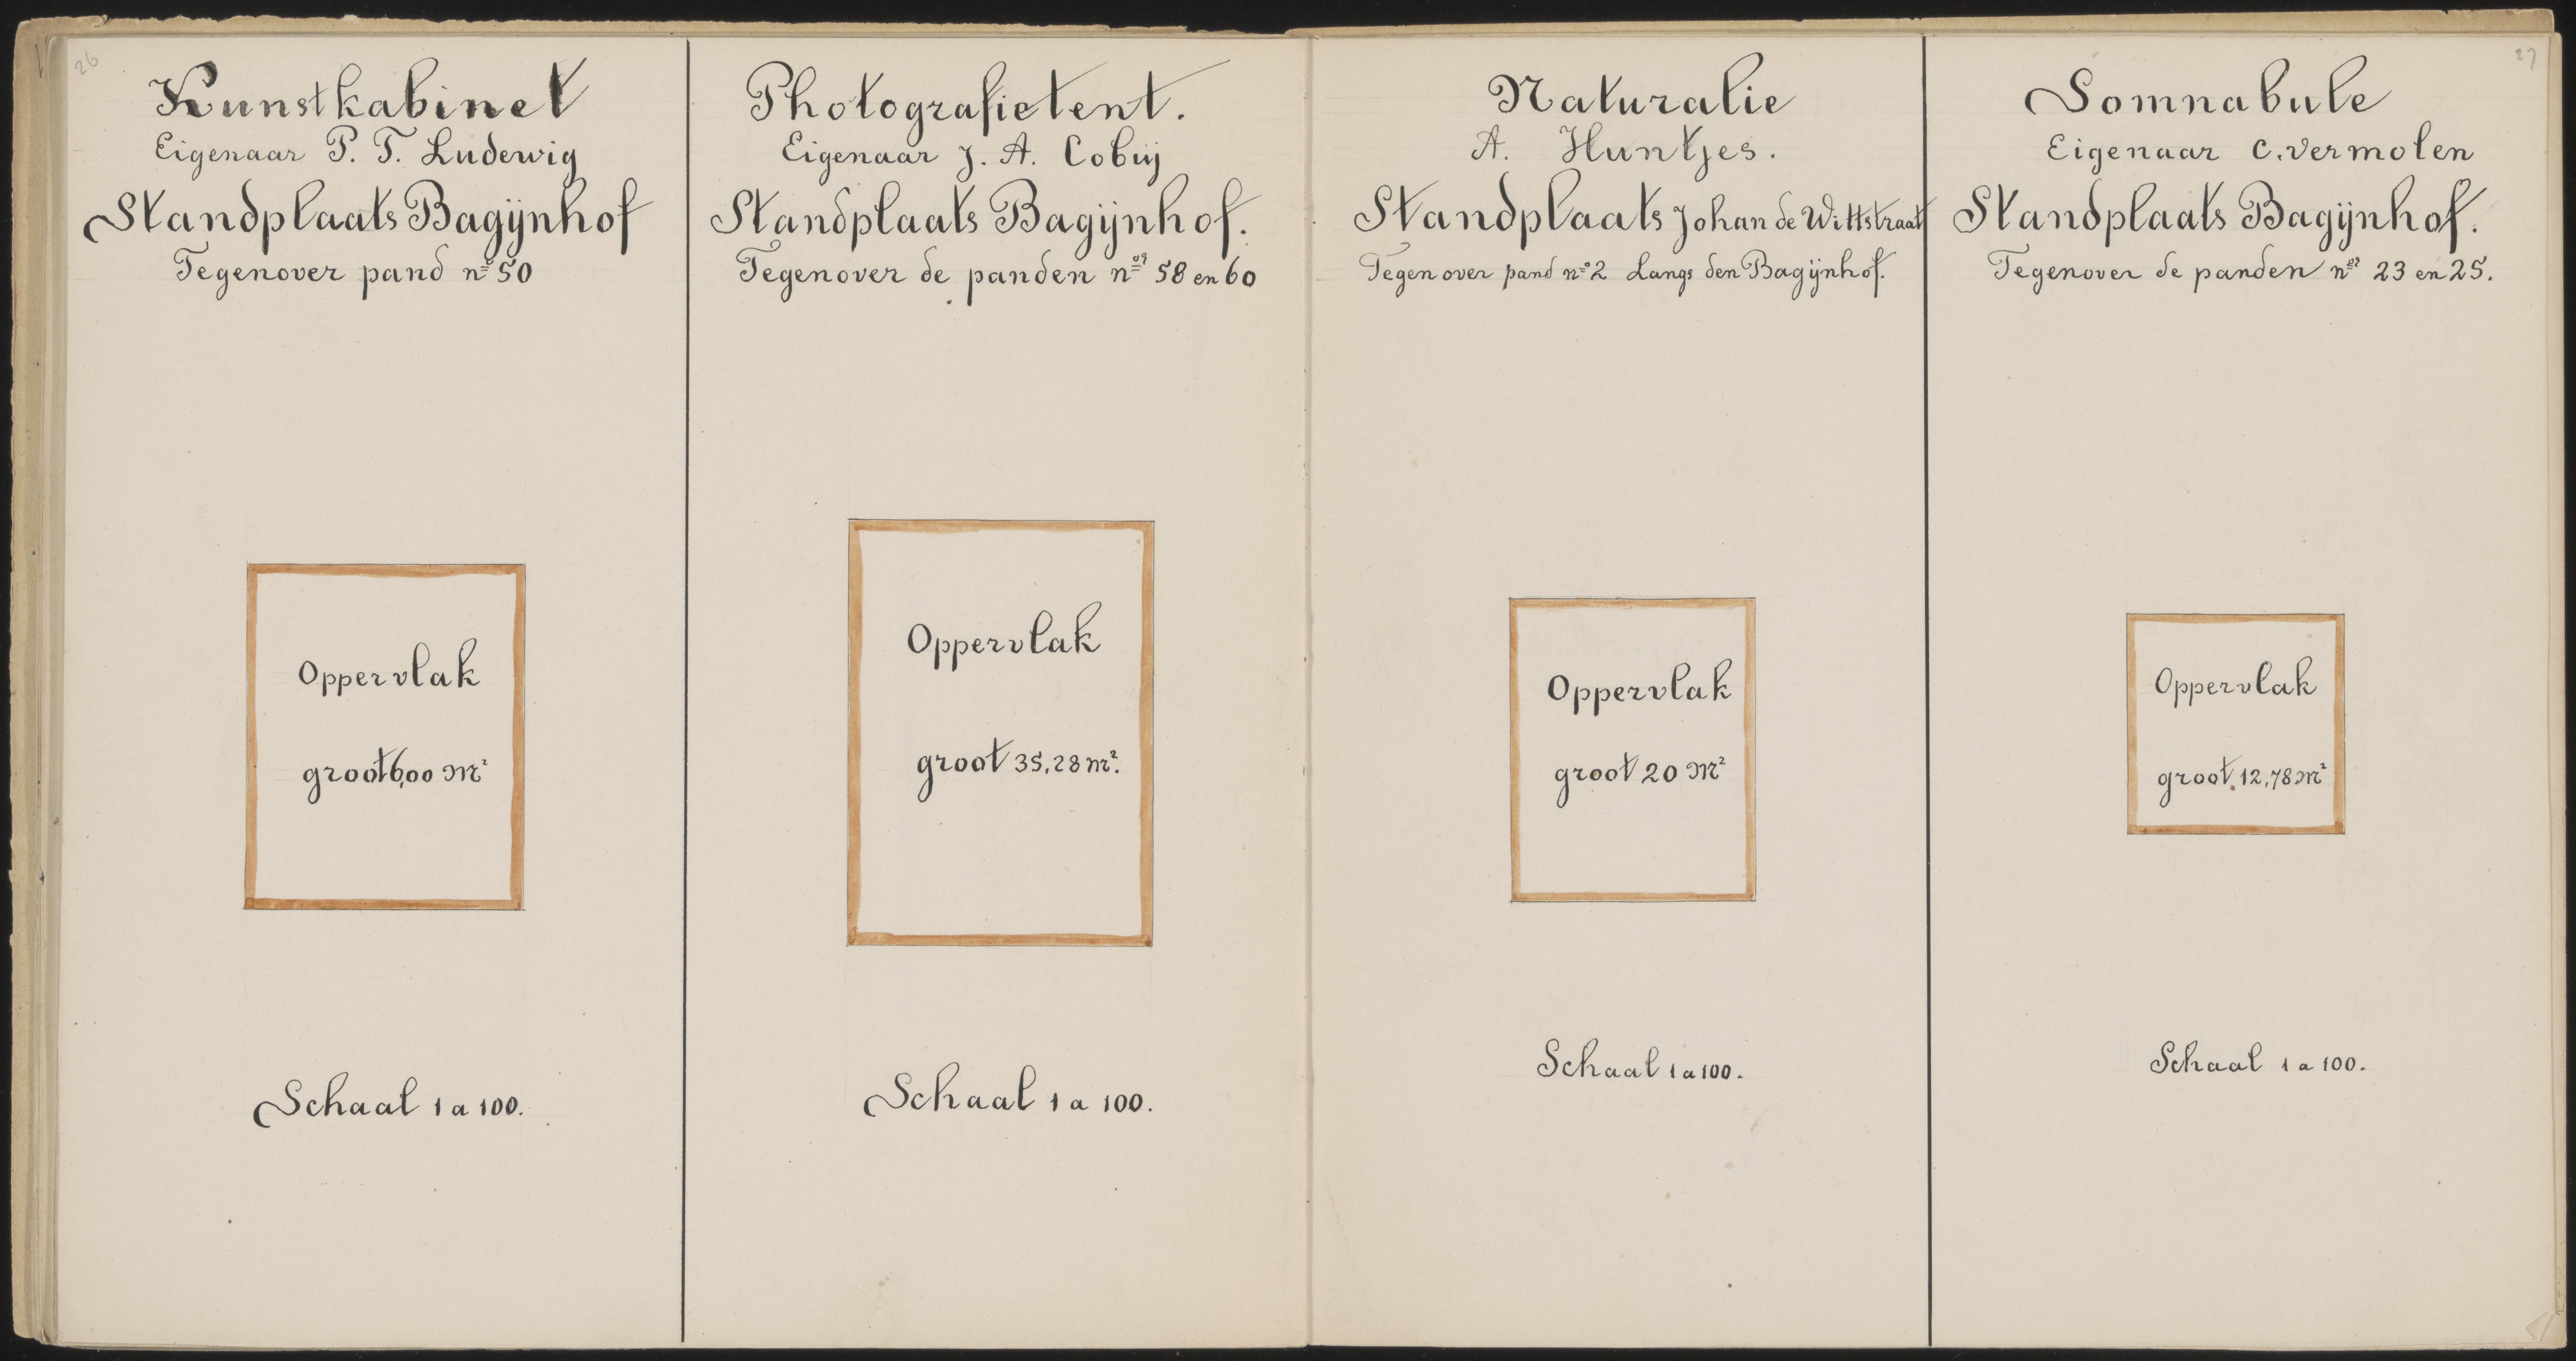 26
Kunstkabinet
Eigenaar P. T. Ludewig
Standplaats Bagijnhof
Tegenover pand no 50
Oppervlak
groot 6,00 M²
Schaal 1 a 100.
Photografietent.
Eigenaar J. A. Cobij
Standplaats Bagijnhof.
Tegenover de panden nos 58 en 60
Oppervlak
groot 35,28 m².
Schaal 1 a 100.
Naturalie
A. Huntjes.
Standplaats Johan de Wittstraat
Tegenover pand no 2 Langs den Bagijnhof.
Oppervlak
groot 20 M²
Schaal 1 a 100.
27
Somnabule
Eigenaar C. Vermolen
Standplaats Bagijnhof.
Tegenover de panden nos 23 en 25.
Oppervlak
groot 12,78 M²
Schaal 1 a 100.